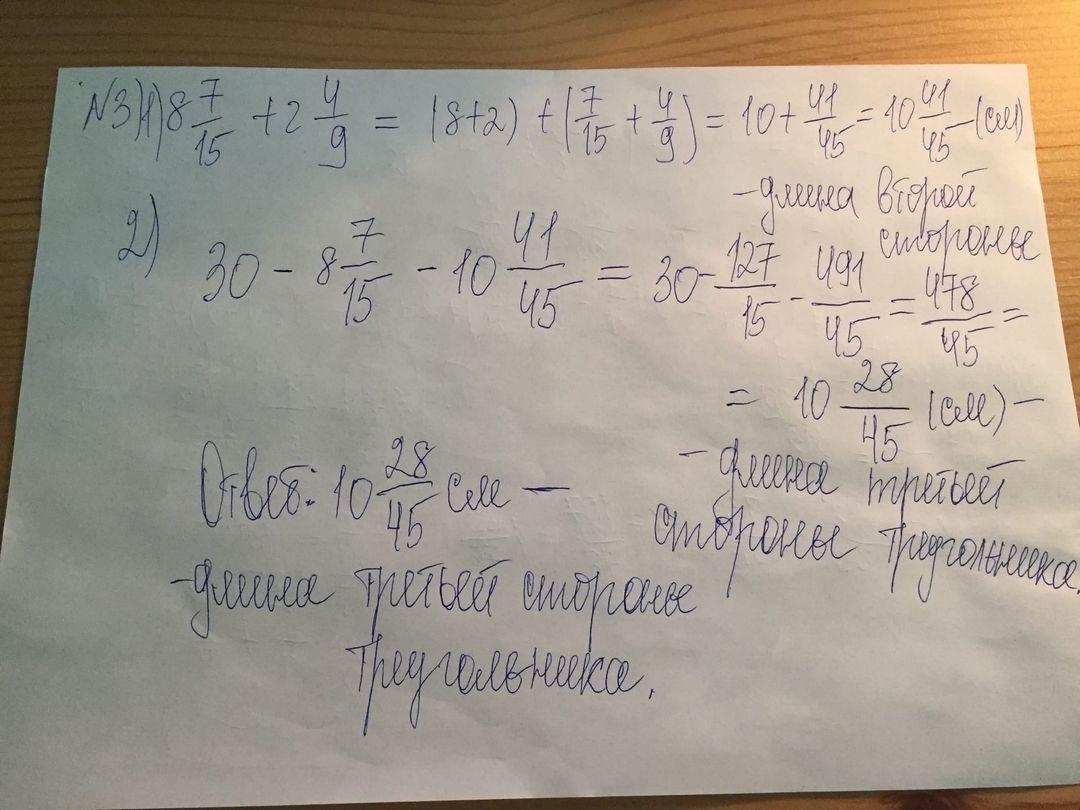 №3)1) 8 7/15 + 2 4/9 = (8+2) + (7/15 + 4/9) = 10 + 41/45 = 10 41/45 (см)
- длина второй
стороны
2) 30 - 8 7/15 - 10 41/45 = 30 - 127/15 - 491/45 = 478/45 =
= 10 28/45 (см) -
- длина третьей
стороны треугольника.
Ответ: 10 28/45 см -
- длина третьей стороны
треугольника.